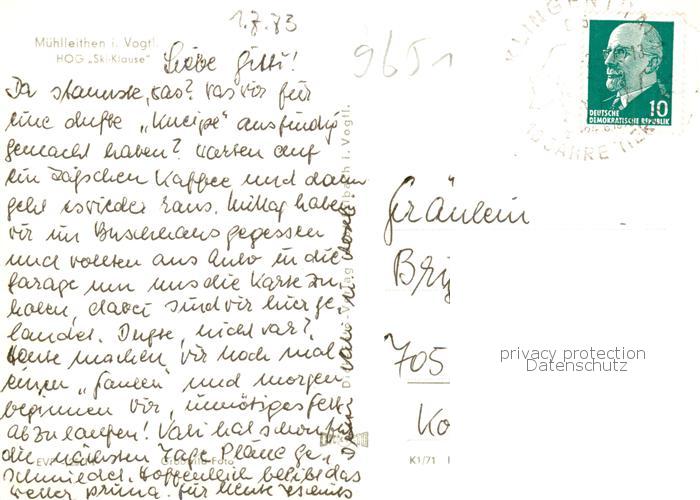 1.7.73
Mühlleithen i. Vogtl.
HOG „Ski-Klause"
9651
Liebe Gitti!
Da staunste, was? Was wir für
eine dufte „Kneipe" ausfindig
gemacht haben? Warten auf
ein Täßchen Kaffee und dann
geht es wieder raus. Mittag haben
wir im Buschhaus gegessen
und wollten ans Auto in die
Garage um uns die Karte zu
holen, dabei sind wir hier ge
landet. Dufte, nicht war?
Heute machen wir noch mal
einen „faulen" und morgen
beginnen wir, unnötiges Fett
abzulaufen! Vati hat schon für
die nächsten Tage Pläne ge
schmiedet. Hoffentlich bleibt das
Wetter prima. Für heute
Deine Vati u.
KLINGENTHAL
JAHRE
DEUTSCHE
DEMOKRATISCHE REPUBLIK
10
Fräulein
705
Ko
privacy protection
Datenschutz
K1/71
Foto